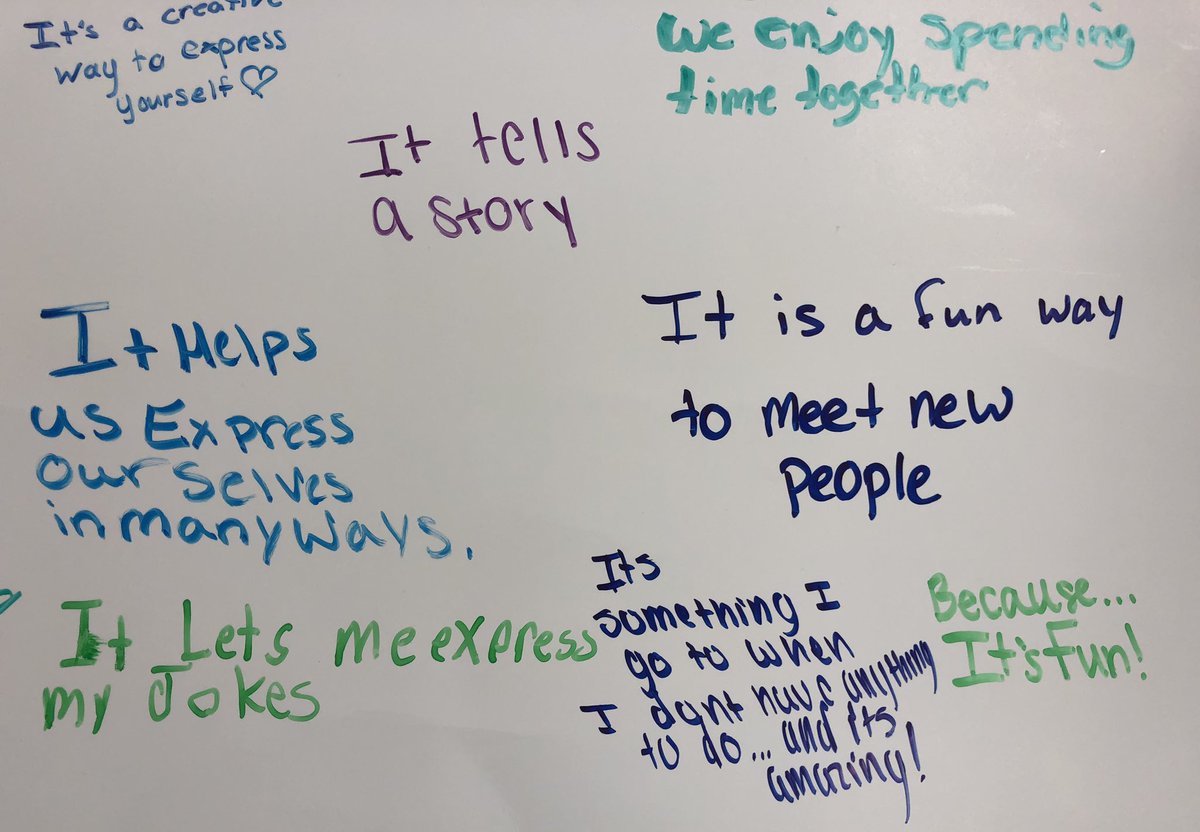 It's a creative
way to express
yourself♡
We enjoy spending
time together
It tells
a story
It Helps
us Express
Our Selves
in many ways.
It is a fun way
to meet new
people
It Lets me express
my Jokes
Its
something I
go to when
I dont have anything
to do... and its
amazing!
Because...
It's Fun!